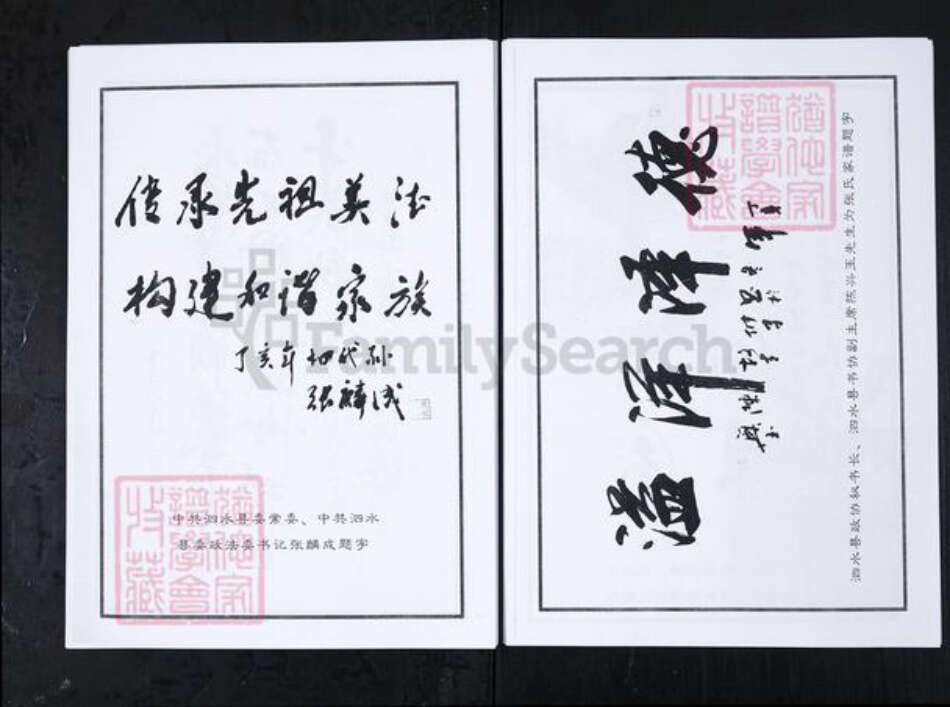 传承先祖美德
构建和谐家族
丁亥年 初代孙
张麟成
中共泗水县委常委、中共泗水
县委政法委书记张麟成题字
FamilySearch
德泽洋溢
泗水县政协秘书长、泗水县书协副主席陈兴玉先生为张氏家谱题字